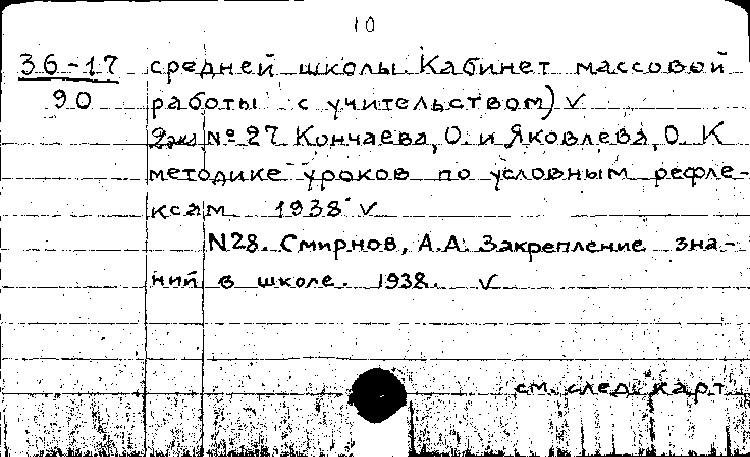 10
36-17 средней школы. Кабинет массовой
90 работы с учительством) √
2экз №27 Кончаева, О. и Яковлева, О. К
методике уроков по условным рефле-
ксам 1938 √
N28. Смирнов, А.А. Закрепление зна-
ний в школе. 1938. √
см. след. карт